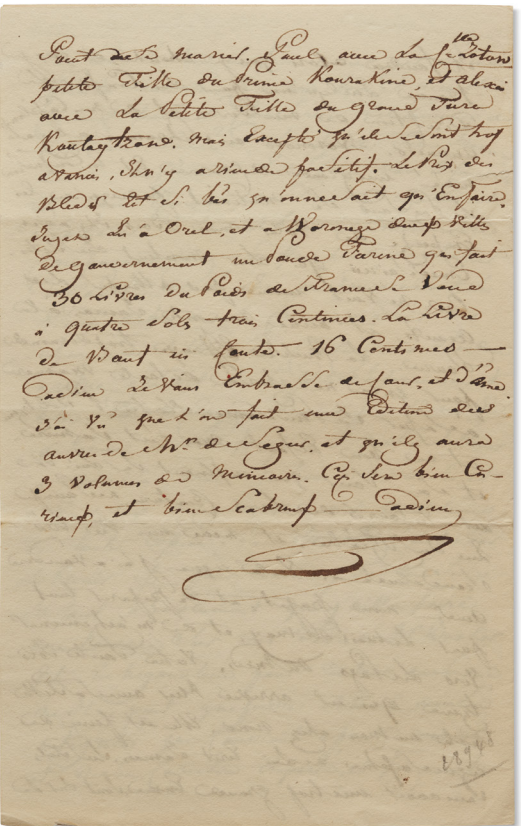 Pont de se marier. Paul, avec La Cesse Zotow
petite Fille du Prince Kourakine, et alexis
avec La Petite Fille du grand Turc
Koutaytzow. mais Excepté qu'ils se sont trop
avancés, il n'y a rien de positif. Le Prix des
Bleds Est si bas qu'on ne sait qu'En faire.
jugez qu'a Orel, et a Woronege deux villes
de gouvernement un Poud de Farine qui fait
30 Livres du Poids de France se Vend
a quatre sols trois Centimes. La Livre
de Bœuf ici Coute. 16 Centimes —
adieu Je vous Embrasse de Cœur, et d'ame.
j'ai vû que l'on fait une Edition des
œuvres de Mr. de Segur, et qu'il y aura
3 volumes de Memoires. Ceci sera bien Cu-
rieux, et bien Scabreux — adieu
18948